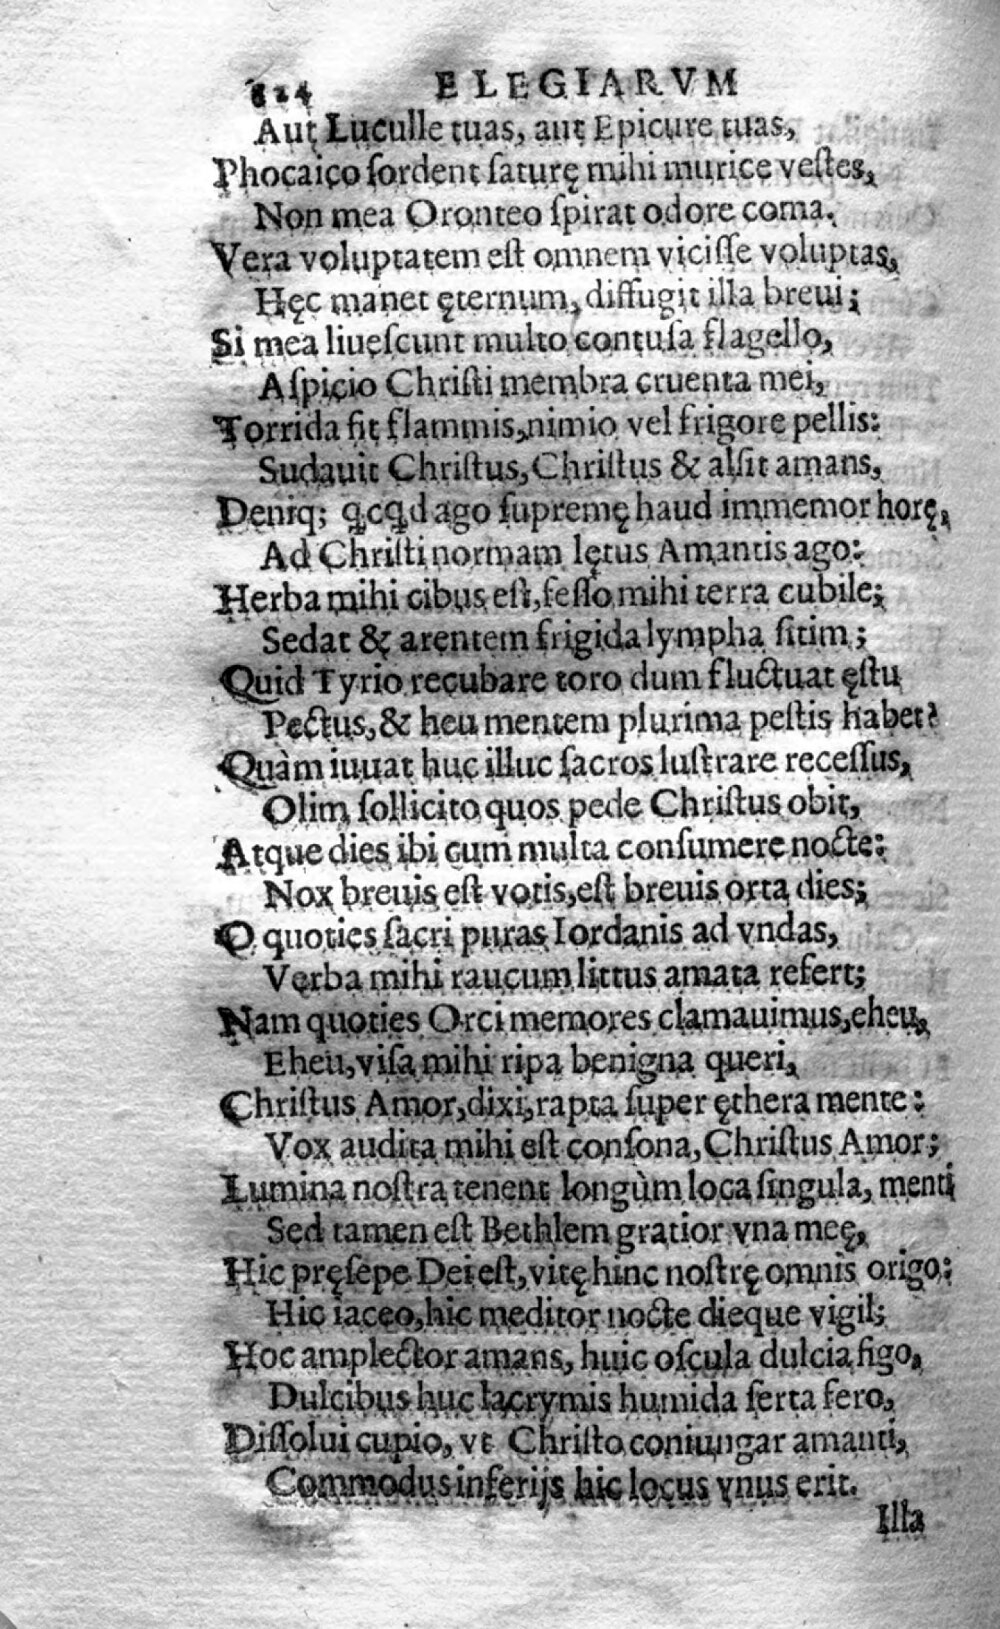 624 ELEGIARVM
Aut Luculle tuas, aut Epicure tuas,
Phocaico sordent saturę mihi murice vestes,
Non mea Oronteo spirat odore coma.
Vera voluptatem est omnem vicisse voluptas,
Hęc manet ęternum, diffugit illa breui;
Si mea liuescunt multo contusa flagello,
Aspicio Christi membra cruenta mei,
Torrida fit flammis, nimio vel frigore pellis:
Sudauit Christus, Christus & alsit amans,
Deniq; ꝗcꝗd ago supremę haud immemor horę,
Ad Christi normam lętus Amantis ago:
Herba mihi cibus est, fesso mihi terra cubile;
Sedat & arentem frigida lympha sitim;
Quid Tyrio recubare toro dum fluctuat ęstu
Pectus, & heu mentem plurima pestis habet?
Quàm iuuat huc illuc sacros lustrare recessus,
Olim sollicito quos pede Christus obit,
Atque dies ibi cum multa consumere nocte:
Nox breuis est votis, est breuis orta dies;
O quoties sacri puras Iordanis ad vndas,
Verba mihi raucum littus amata refert;
Nam quoties Orci memores clamauimus, eheu,
Eheu, visa mihi ripa benigna queri,
Christus Amor, dixi, rapta super ęthera mente:
Vox audita mihi est consona, Christus Amor;
Lumina nostra tenent longùm loca singula, menti
Sed tamen est Bethlem gratior vna meę,
Hic pręsepe Dei est, vitę hinc nostrę omnis origo:
Hic iaceo, hic meditor nocte dieque vigil;
Hoc amplector amans, huic oscula dulcia figo,
Dulcibus huc lacrymis humida serta fero,
Dissolui cupio, vt Christo coniungar amanti,
Commodus inferijs hic locus vnus erit.
Illa